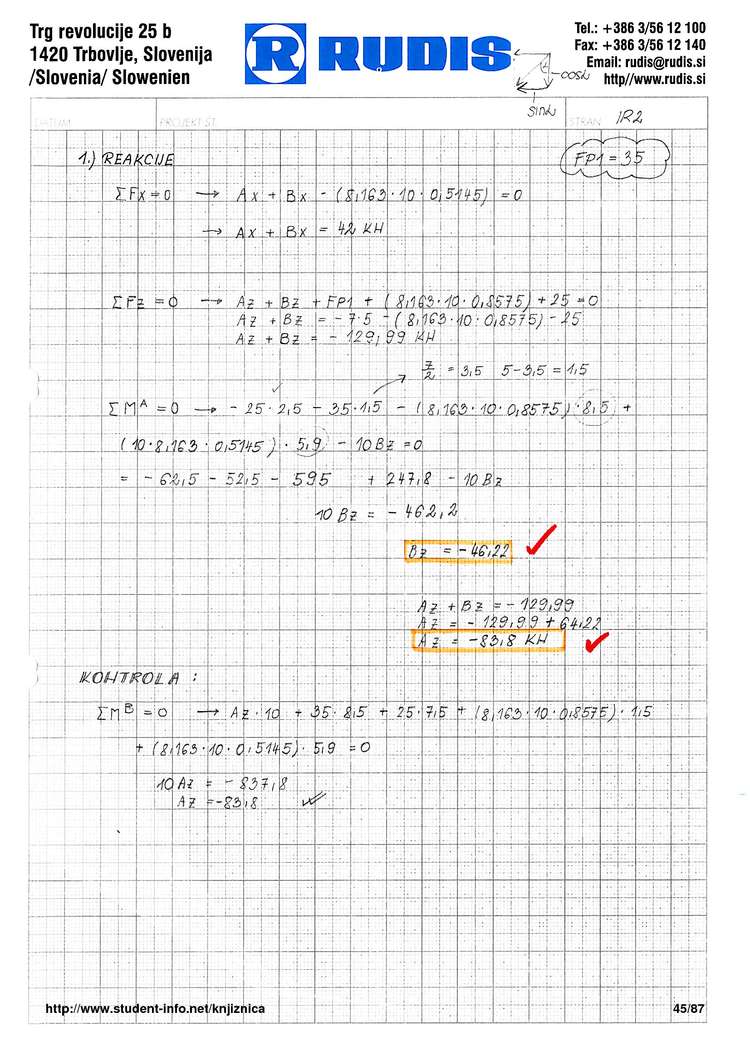 Trg revolucije 25 b
1420 Trbovlje, Slovenija
/Slovenia/ Slowenien
R RUDIS
Tel.: +386 3/56 12 100
Fax: +386 3/56 12 140
Email: rudis@rudis.si
http//www.rudis.si
cosα
sinα
DATUM
PROJEKT ŠT.
STRAN 1R2
1.) REAKCIJE
FP1 = 35
ΣFx = 0 → Ax + Bx - (8,163·10·0,5145) = 0
→ Ax + Bx = 42 KN
ΣFz = 0 → Az + Bz + FP1 + (8,163·10·0,8575) + 25 = 0
Az + Bz = -7·5 -(8,163·10·0,8575) - 25
Az + Bz = -129,99 KN
7/2 = 3,5 5-3,5 = 1,5
ΣM^A = 0 → -25·2,5 - 35·1,5 - (8,163·10·0,8575)·8,5 +
(10·8,163·0,5145)·5,9 - 10Bz = 0
= -62,5 - 52,5 - 595 + 247,8 - 10Bz
10 Bz = -462,2
Bz = -46,22
Az + Bz = -129,99
Az = -129,99 + 64,22
Az = -83,8 KN
KONTROLA :
ΣM^B = 0 → Az·10 + 35·8,5 + 25·7,5 + (8,163·10·0,8575)·1,5
+ (8,163·10·0,5145)·5,9 = 0
10Az = -837,8
Az = -83,8
http://www.student-info.net/knjiznica
45/87